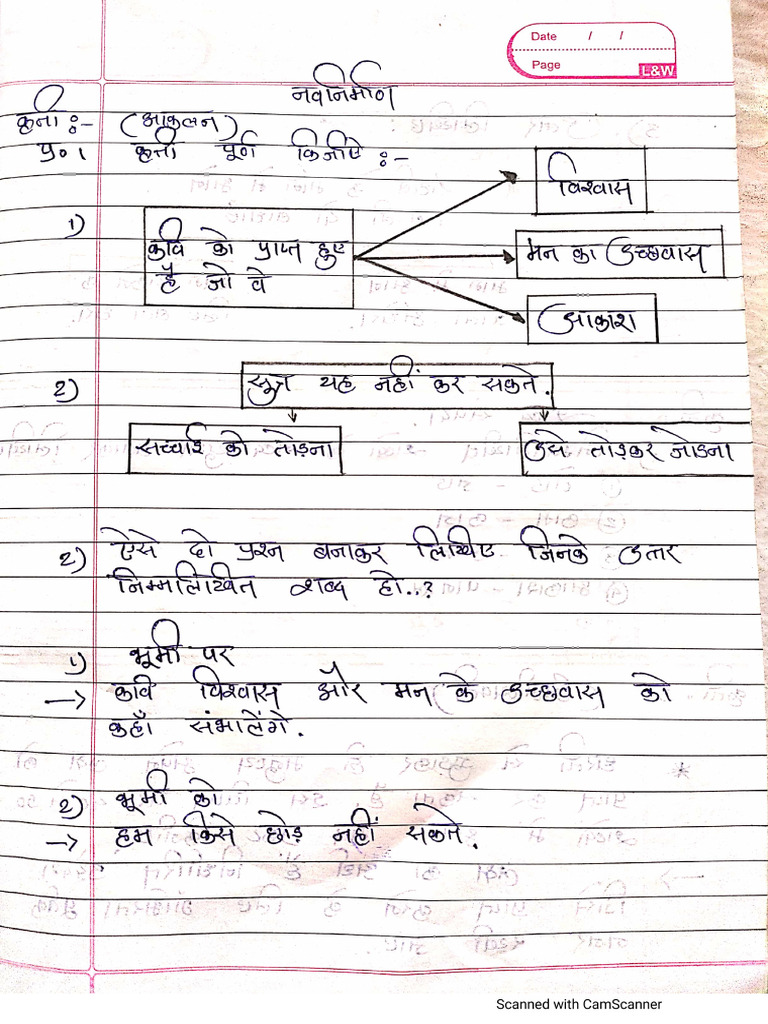 Date / /
Page
L&W
नवनिर्माण
कृती :- (आकलन)
प्र०१ कृती पूर्ण किजीऐ :-
विश्वास
1) कवि को प्राप्त हुए
मन का उच्छवास
है जो वे
आकाश
2) सूत्र यह नहीं कर सकते.
सच्चाई को तोड़ना उसे तोड़कर जोडना
2) ऐसे दो प्रश्न बनाकर लिखिए जिनके उत्तर
निम्मलिखित शब्द हो..?
1) भूमी पर
→ कवि विश्वास और मन के उच्छवास को
कहाँ संभालेंगे.
2) भूमी को
→ हम किसे छोड़ नहीं सकते.
Scanned with CamScanner